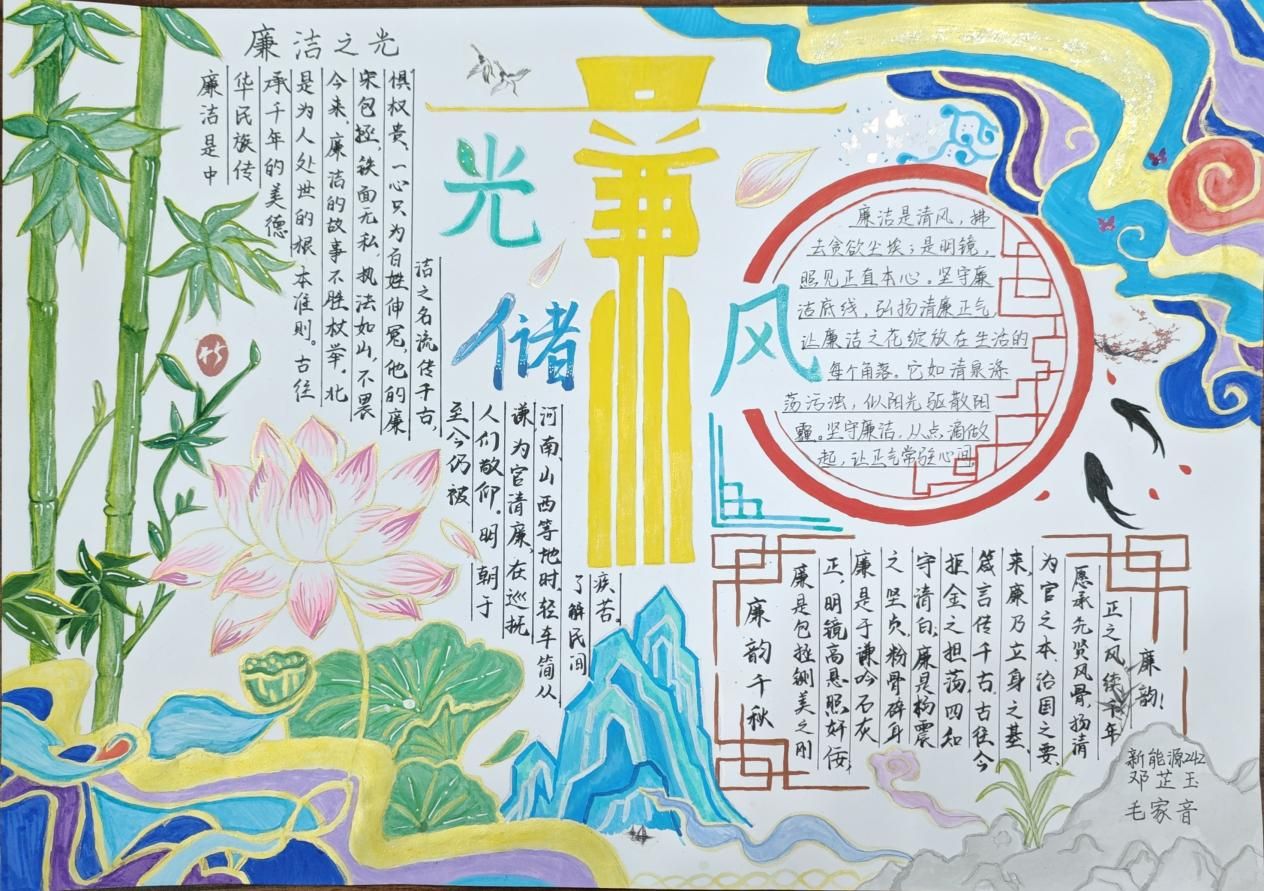 廉洁之光
廉洁是中
华民族传
承千年的美德
是为人处世的根本准则。古往
今来，廉洁的故事不胜杖举。北
宋包拯，铁面无私，执法如山，不畏
惧权贵，一心只为百姓伸冤，他的廉
洁之名流传千古，
至今仍被
人们敬仰。明朝于
谦为官清廉，在巡抚
河南、山西等地时，轻车简从
了解民间
疾苦。
光储
廉
风
廉洁是清风，拂
去贪欲尘埃；是明镜，
照见正直本心。坚守廉
洁底线，弘扬清廉正气，
让廉洁之花绽放在生活的
每个角落。它如清泉涤
荡污浊，似阳光驱散阴
霾。坚守廉洁，从点滴做
起，让正气常驻心间。
廉韵千秋
廉是包拯铡美之刚
正，明镜高悬照奸佞，
廉是于谦吟石灰
之坚贞，粉骨碎身
守清白，廉是杨震
拒金之坦荡，四知
箴言传千古。古往今
来，廉乃立身之基，
为官之本，治国之要，
愿承先贤风骨，扬清
正之风，续千年
廉韵！
新能源242
邓芷玉
毛家音